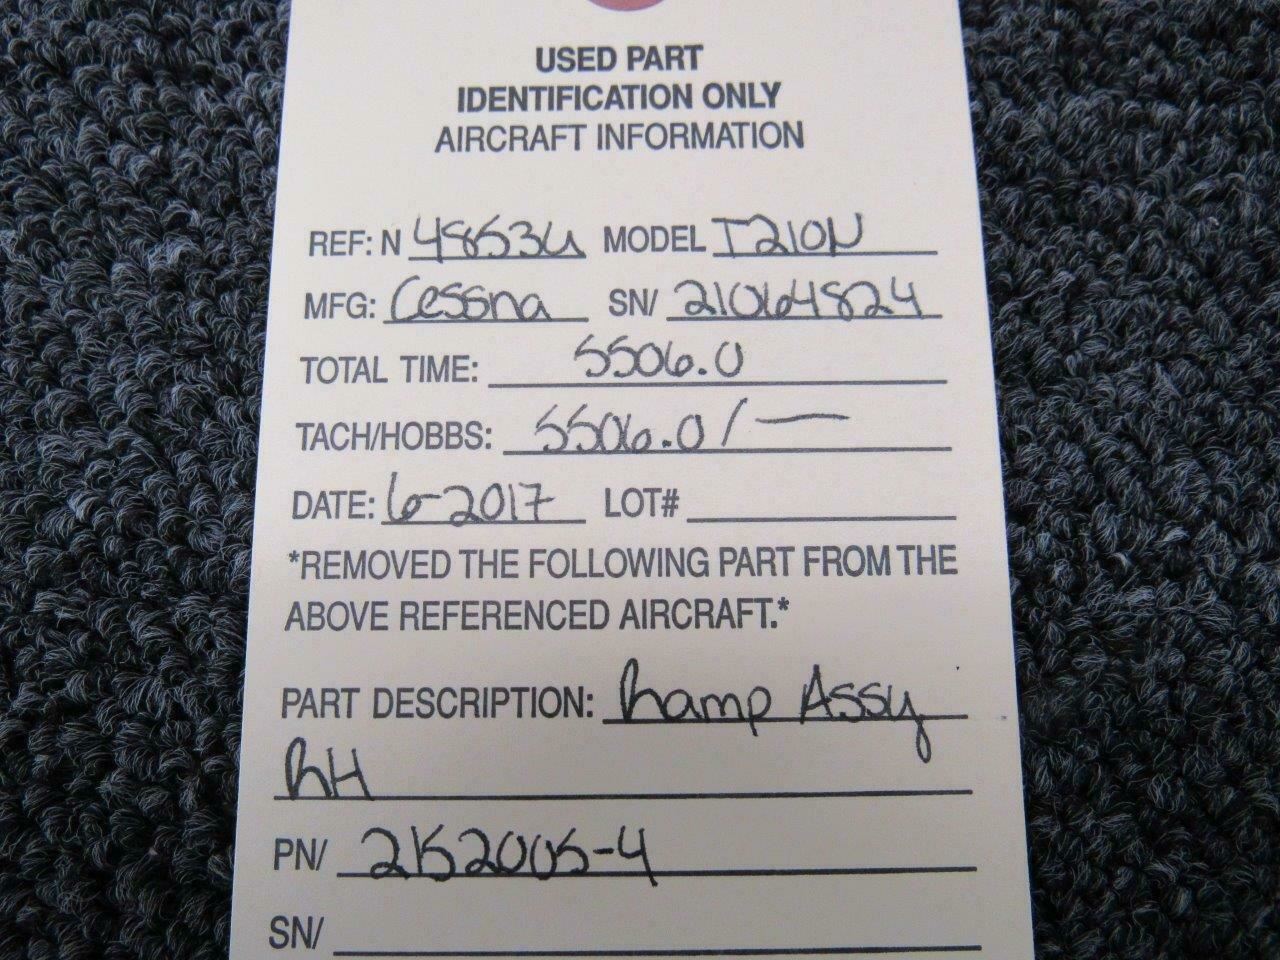 USED PART
IDENTIFICATION ONLY
AIRCRAFT INFORMATION
REF: N 4853U MODEL T210N
MFG: Cessna SN/ 21064824
TOTAL TIME: 5506.0
TACH/HOBBS: 5506.0/—
DATE: 6-2017 LOT#
*REMOVED THE FOLLOWING PART FROM THE
ABOVE REFERENCED AIRCRAFT.*
PART DESCRIPTION: Ramp Assy
RH
PN/ 2152005-4
SN/